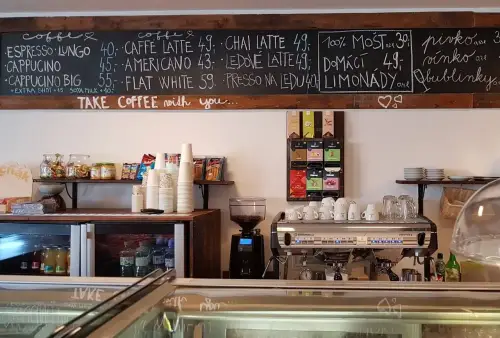 COFFEE
ESPRESSO·LUNGO 40,-
CAPPUCINO 45,-
CAPPUCINO BIG 55,-
+EXTRA SHOT
COFFEE
CAFFE LATTE 49,-
AMERICANO 43,-
FLAT WHITE 59,-
CHAI LATTE 49,-
LEDOVÉ LATTE 49,-
PRESSO NA LEDU 40,-
100% MOŠT 30,-
DOMÁCÍ 49,-
LIMONÁDY
pivko
vínko
bublinky
TAKE COFFEE with you...